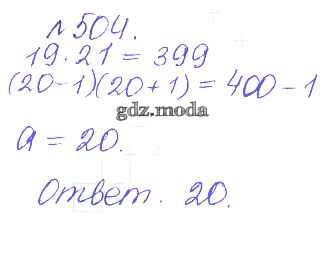 №504.
19·21 = 399
(20-1)(20+1) = 400-1
gdz.moda
a = 20.
Ответ. 20.